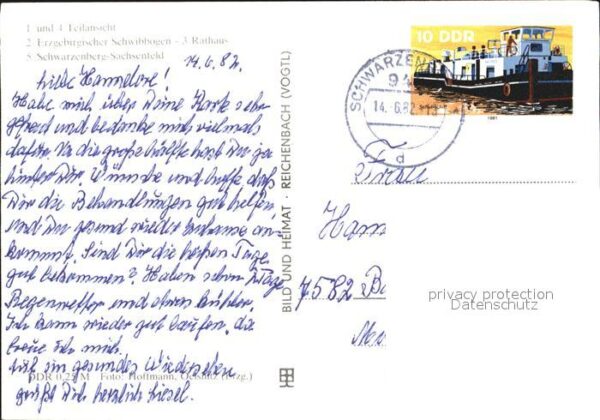 1 und 4 Teilansicht
2 Erzgebirgischer Schwibbogen - 3 Rathaus
5 Schwarzenberg-Sachsenfeld
14.6.82.
Liebe Hannelore!
Habe mich über Deine Karte sehr
gefreut und bedanke mich vielmals
dafür. Da die große Hälfte hast Du ja
hinter Dir. Wünsche und hoffe, daß
Dir die Behandlungen gut helfen,
und Du gesund wieder zuhause an-
kommst. Sind Dir die heißen Tage
gut bekommen? Haben schon Tage
Regenwetter und etwas kühler.
Ich kann wieder gut laufen, da
freue ich mich.
Auf ein gesundes Wiedersehen
grüßt Dich herzlich Liesel.
DDR 0,25 M Foto: Hoffmann, Oelsnitz (Erzg.)
BILD UND HEIMAT · REICHENBACH (VOGTL)
10 DDR
1981
SCHWARZEN
94
14.-6.82
d
Frau
Hann
7582 Ba
privacy protection
Datenschutz